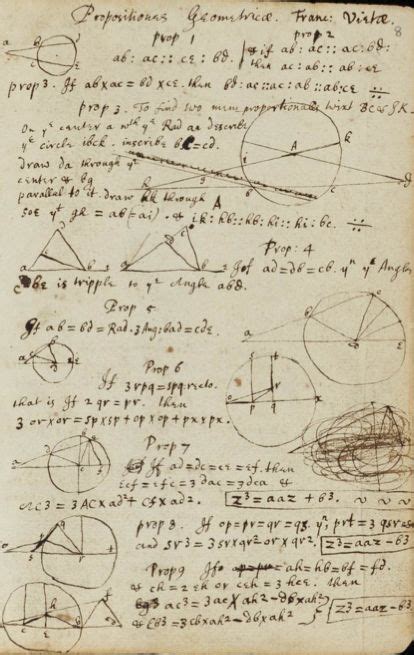 Propositiones Geometricæ. Franc: Vietæ.
8
prop 1
ab: ac:: ce: bd.
prop 2
& if ab: ac:: ac: bd:
then ac: ab:: ab: ce
prop 3. If ab x ac = bd x ce. then bd: ac:: ac: ab:: ab: ce
prop 3. To find two mean proportionalls twixt
On ye center a wth ye Rad ab describe
ye circle ibck. inscribe bc = cd.
draw da through ye
center & bg
parallel to it. draw through A
soe yt gh = ab = ai. & ik: hb:: hb: hi:: hi: bc.
Prop: 4
If ad = db = cb. yn ye Angle
dbe is tripple to ye Angle abd.
Prop 5
If ab = bd = Rad. 3 Ang: bad = cde.
Prop 6
If 3rpq = spq recto.
that is If 2qr = pr. then
3 or x or = sp x sp + op x op + px x px.
Prop 7
If ad = dc = ce = ef. then
ecf = efc = 3 dac = 3 dca &
AC3 = 3AC x ad2 + Cf x ad2.
z3 = aaz + b3.
prop 8. If op = pr = qr = qs. yn prt = 3
and sr3 = 3sr x qr2 or x qr2.
z3 = aaz - b3
Prop 9 If ah = hb = bf = fd.
& ch = 2eh or ceh = 3 hce. then
ac3 = 3ac x ah2 - db x ah2
& cb3 = 3cb x ah2 - db x ah2
z3 = aaz - b3